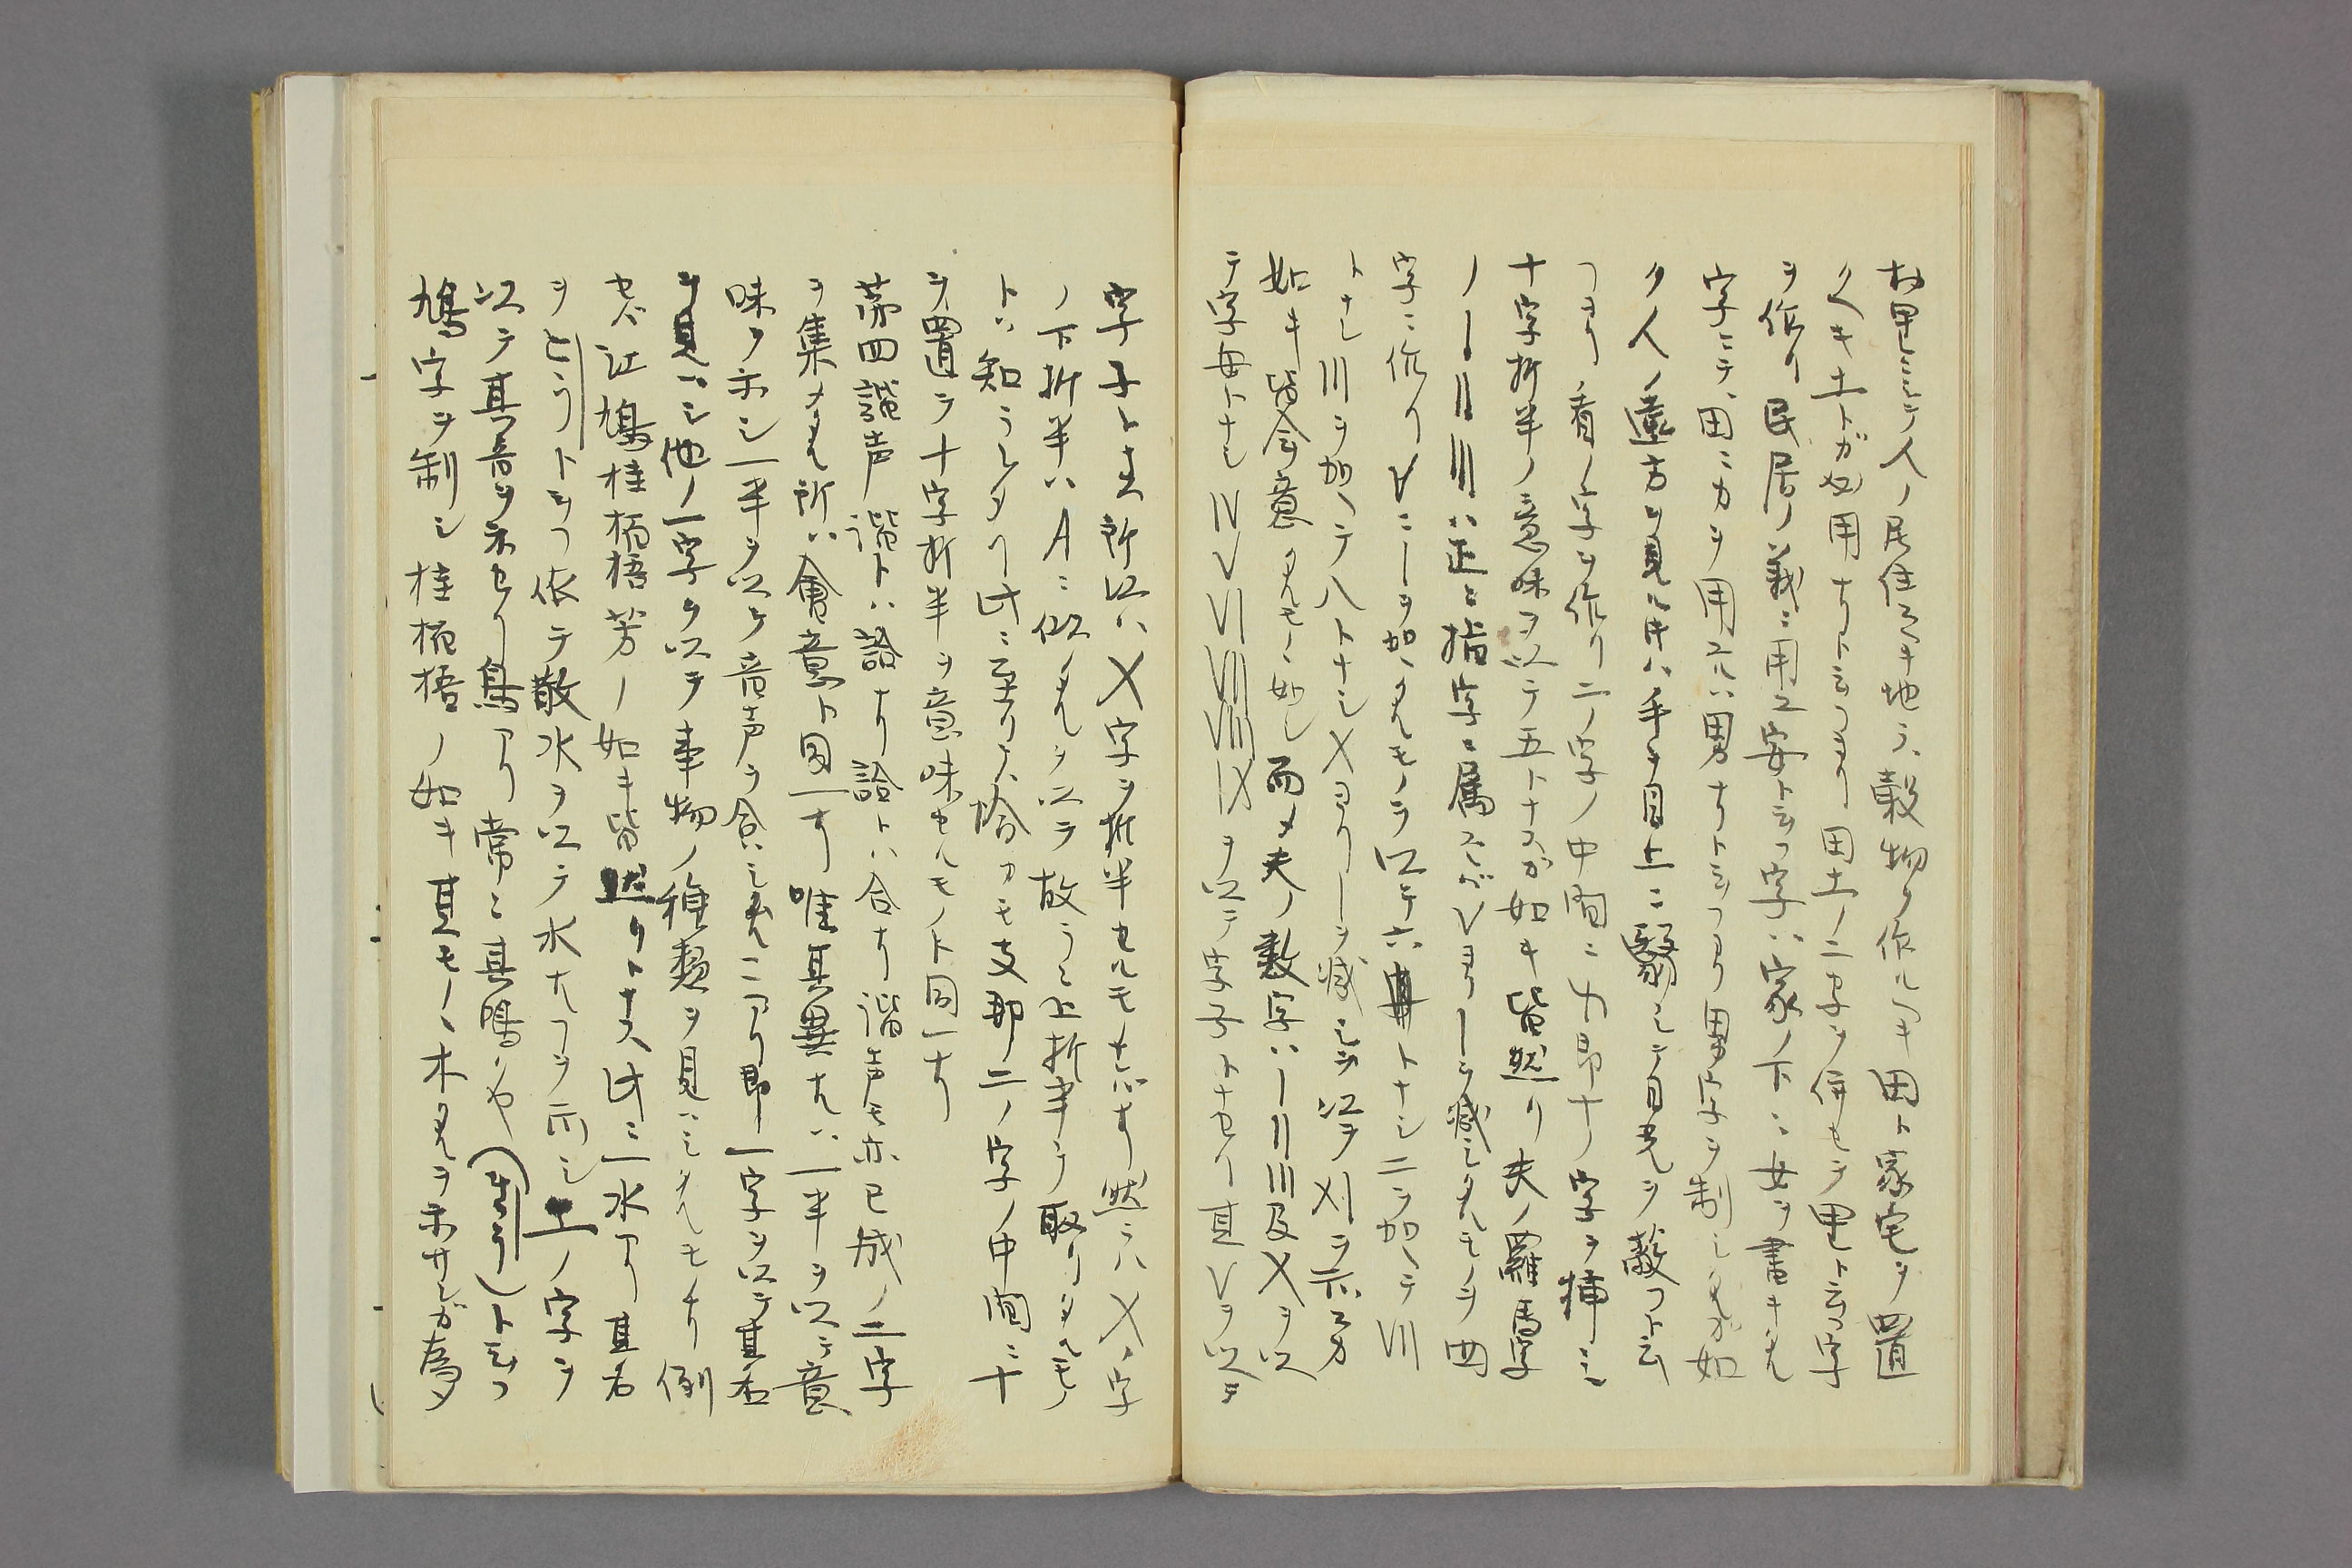 村里ニシテ人ノ居住スヘキ地ニ穀物ヲ作ルヘキ田ト家宅ヲ置
クヘキ土トガ必用ナリト云フヨリ田土ノ二字ヲ併セテ里ト云フ字
ヲ作リ民居ノ義ニ用ヱ安ト云フ字ハ家ノ下ニ女ヲ書キタル
字ニテ田ニカヲ用ユルハ男ナリト云フヨリ男字ヲ制シタルガ如
ク人ノ遠方ヲ見ル片ハ手ヲ目上ニ翳シテ日光ヲ蔽フト云
フヨリ看ノ字ヲ作リ二ノ字ノ中間ニ 即十ノ字ヲ挿ミ
十字折半ノ意味ヲ以テ五トナスガ如キ皆然リ夫ノ羅馬字
ノ〡〢〣ハ正ニ指字ニ属スレバVヨリ〡ヲ減シタルモノヲ四
字ニ作リVニ〡ヲ加ヘタルモノヲ以テ六トナシ二ヲ加ヘテVII
トナシIIIヲ加ヘテ八トナシXヨリIヲ減シ以テIXヲ示スガ
如キ皆会意タルモノヽ如シ而メ夫ノ数字ハI II III及Xヲ以
テ字母トナシIV V VI VII VIII IXヲ以テ字子トナセリ其Vヲ以テ
字子ト云所以ハX字ヲ折半セルモナレバナリ然ラバX字
ノ下折半ハAニ似タルヲ以テ故ラニ上折半ヲ取リタルモノ
トハ知ラレタリ此ニ至リテハ恰カモ支那二ノ字ノ中間ニ十
ヲ置テ十字折半ヲ意味セルモノト同一ナリ
第四諧声 諧トハ詥ナリ詥トハ合ナリ諧声モ亦已成ノ二字
ヲ集メタル所ハ會意ト同一ナリ唯其異ナルハ一半ヲ以テ意
味ヲ示シ一半ヲ以テ音声ヲ合ハシタルニアリ即一字ヲ以テ其音
ヲ見ハシ他ノ一字ヲ以テ事物ノ種類ヲ見ハシタルモノナリ例
セバ江鳩桂梧芳ノ如キ皆然リトナス此ニ一水アリ其名
ヲト云フ依テ散水ヲ以テ水ナルフヲ示シ工ノ字ヲ
以テ其音ヲ示セリ鳥アリ常ニ其鳴クヤ(きうきう)ト云フ
鳩字ヲ制シ桂梧ノ如キ其モノヽ木タルヲ示サンガ為メ